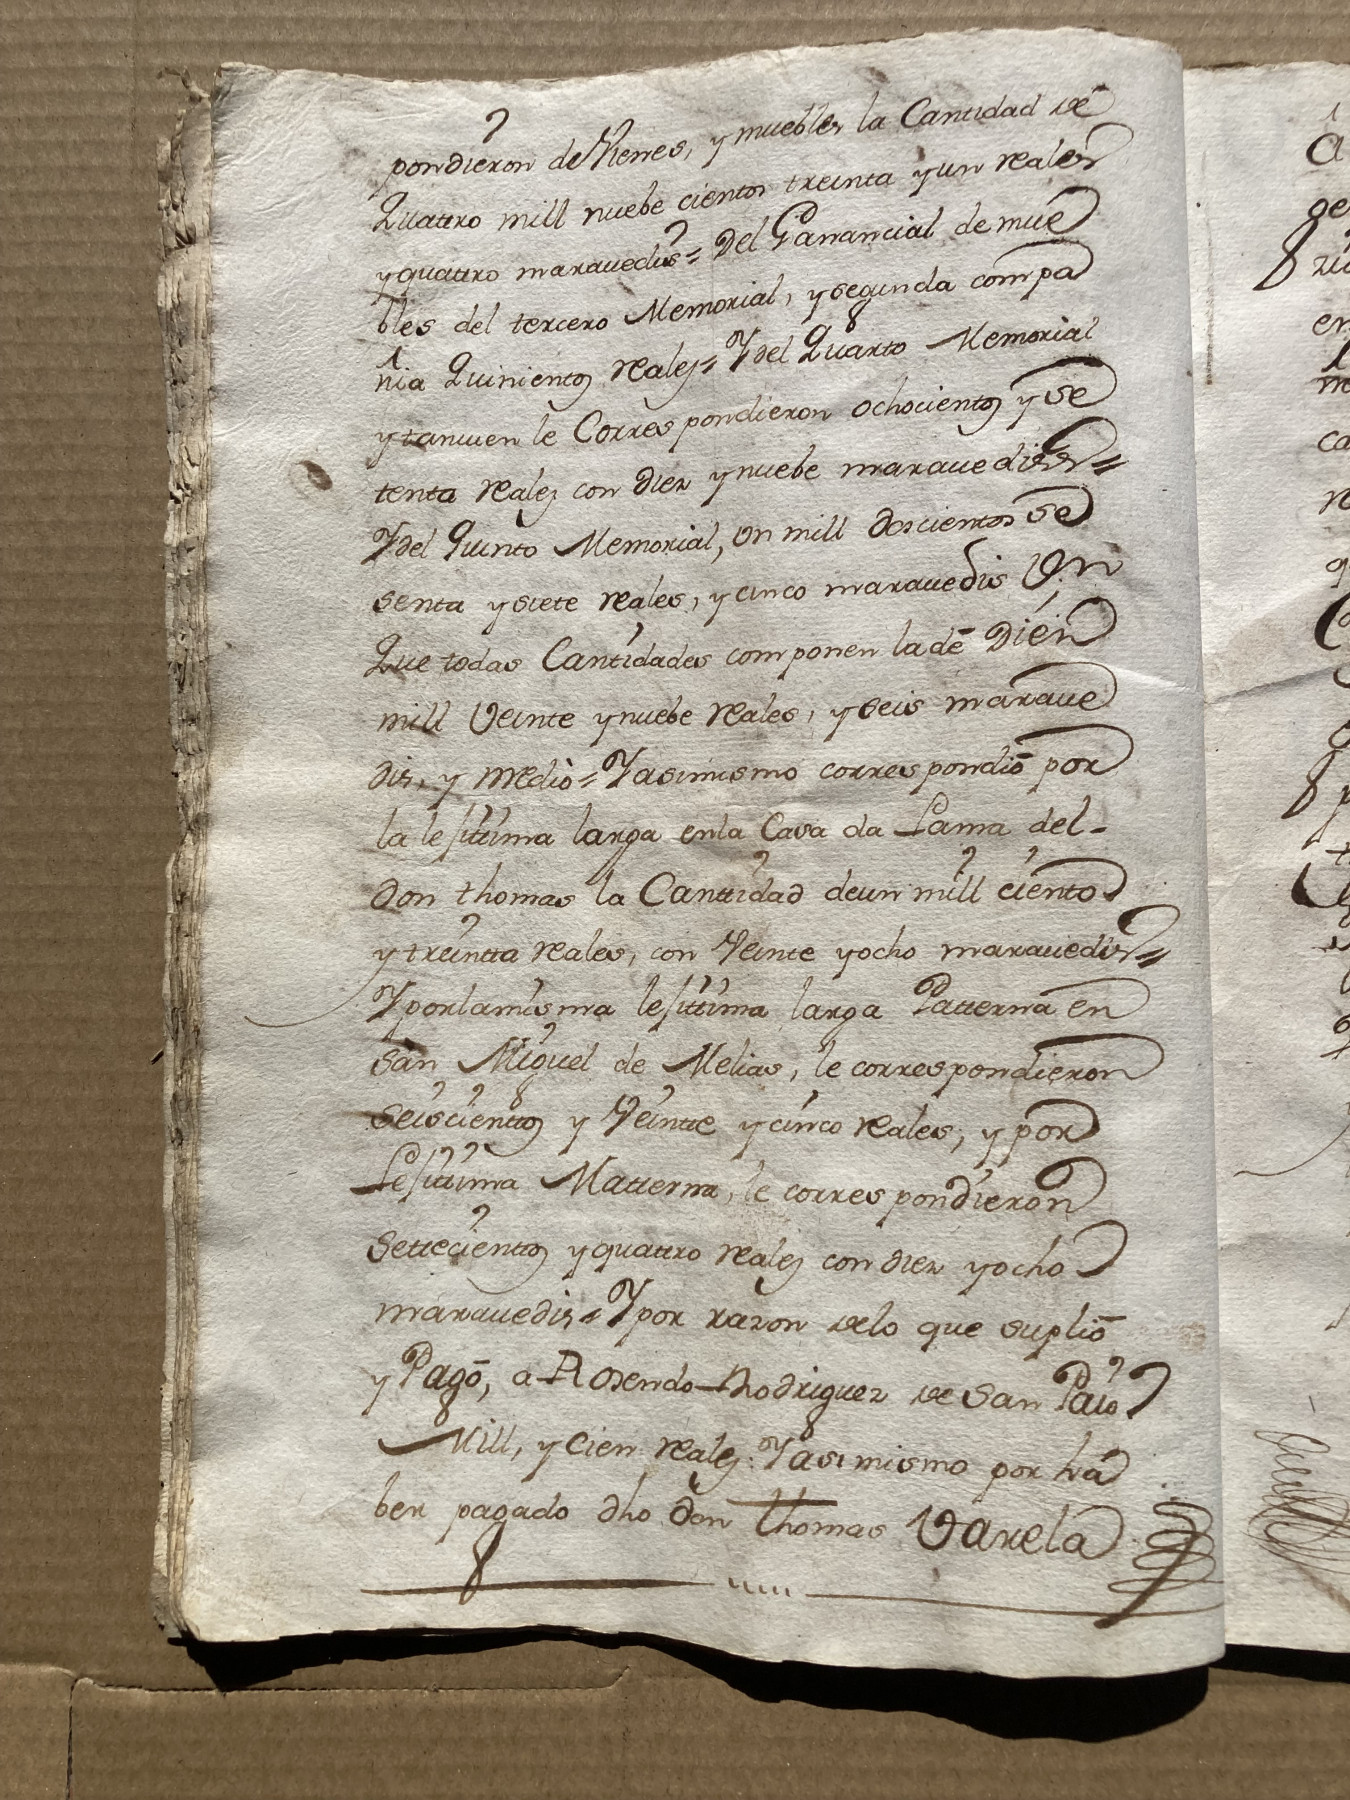 pondieron de Vienes, y muebles la Cantidad de
Quattro mill nuebe cientos treinta y un reales
y quattro marauedis = Del Ganancial de mue
bles del tercero Memorial, y segunda compa
nia Quinientos reales = Y del Quarto Memorial
y tamuien le Correspondieron ochocientos y se
tenta reales con diez y nuebe marauedises =
Y del Quinto Memorial, un mill doscientos se
senta y siete reales, y cinco marauedis
Que todas Cantidades componen la de Diez
mill Veinte y nuebe reales, y seis maraue
dis, y medio = Y asimismo correspondió por
la lesittima larga en la Casa da Lama del
don thomas la Cantidad de un mill ciento
y treintta reales, con Veinte y ocho marauedis =
Y por la misma lesittima larga Patterna en
San Miguel de Melias, le correspondieron
seiscientos y Veintte y cinco reales, y por
Lesittima Matterna, le correspondieron
settecientos y quattro reales con diez y ocho
marauedis = Y por razon de lo que suplió
y Pagó, a Rosendo Rodriguez de San Paio
Mill, y cien reales. Y asimismo por há
ber pagado dho don thomas Varela